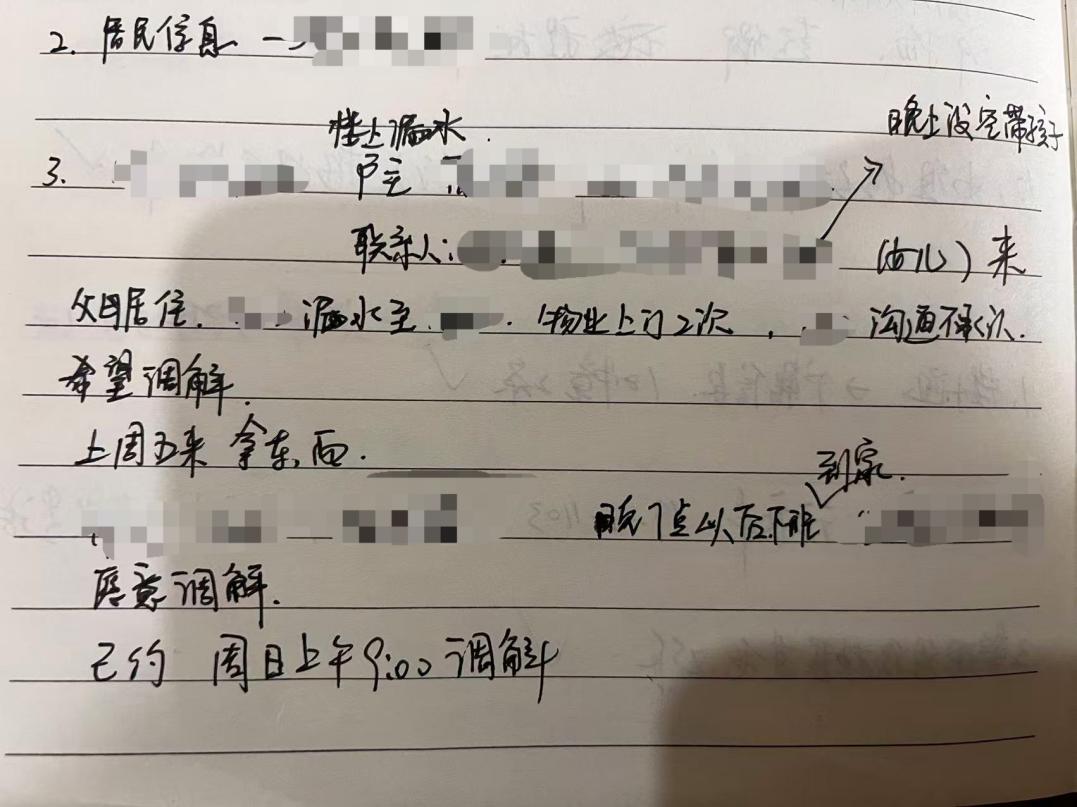 2. 居民信息 →
楼上漏水.
晚上没空带孩子
3. 户主
联系人:
(女儿) 来
父母居住. 漏水至 . 物业上门2次, 沟通不承认.
希望调解.
上周五来 拿东西.
到家.
晚7点以后才能
愿意调解.
已约 周日上午9:00调解